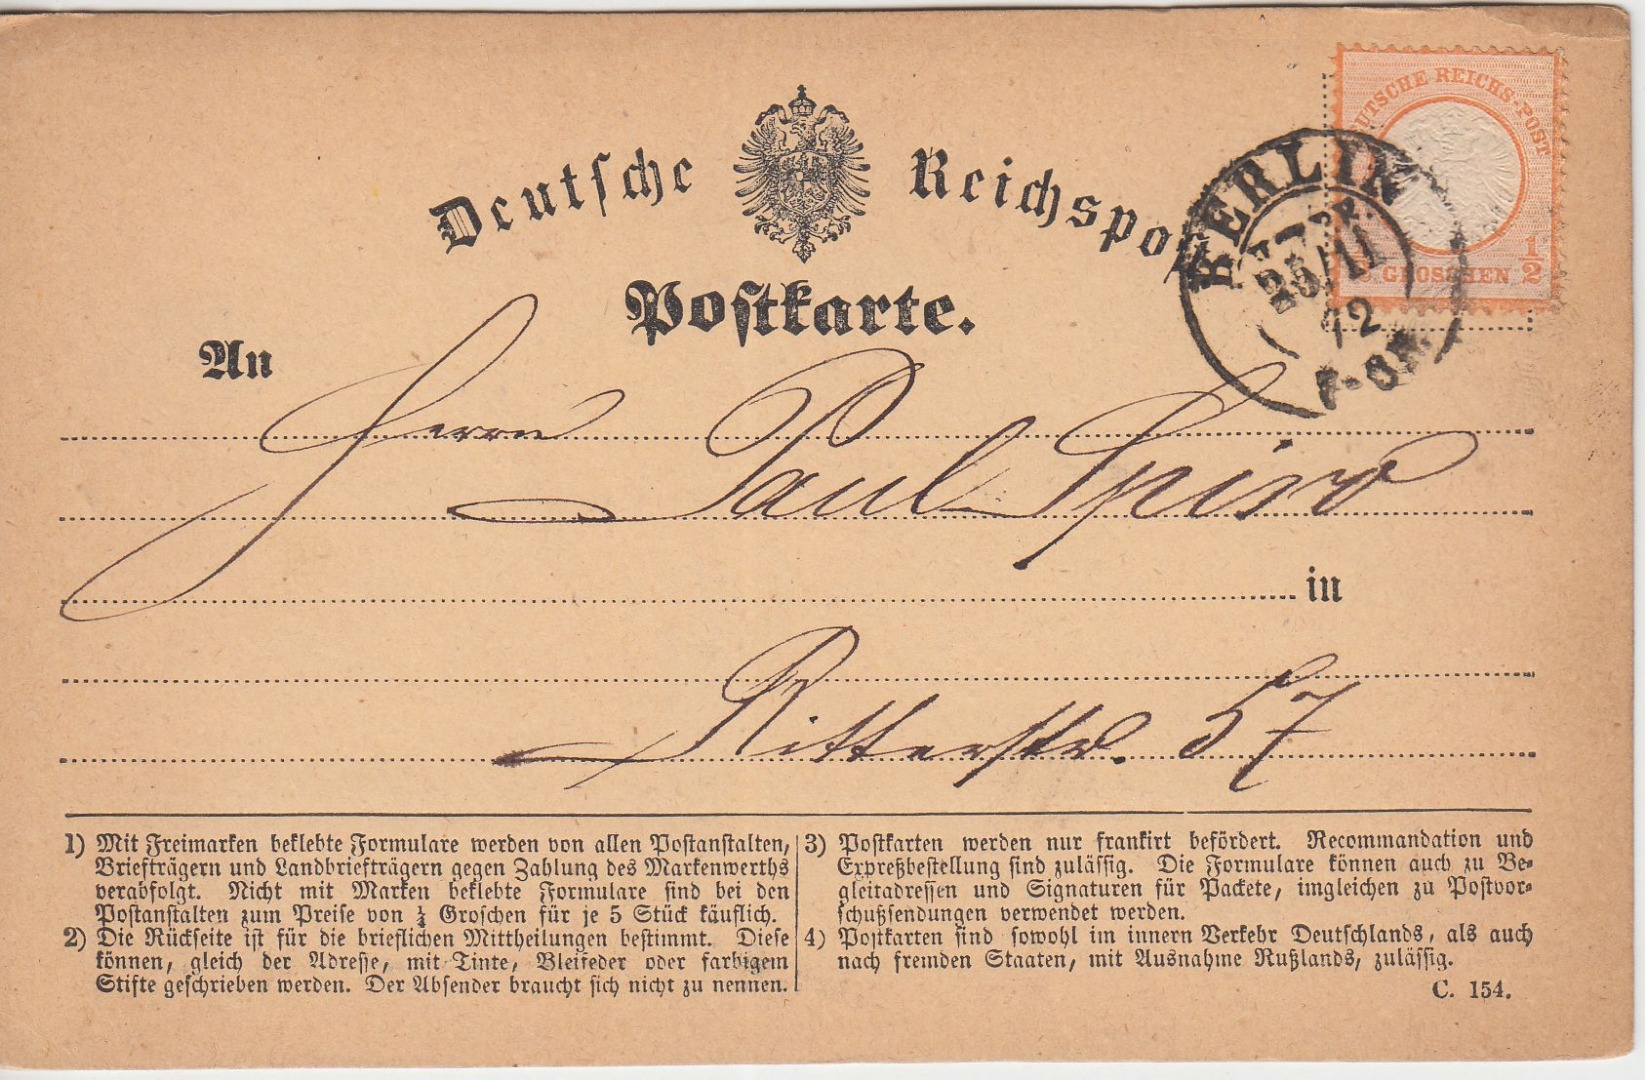 Deutsche Reichspost
Postkarte.
DEUTSCHE REICHS-POST
½ GROSCHEN ½
BERLIN
25/11
72
An
Herrn
Paul Spiro
in
Ritterstr. 57
1) Mit Freimarken beklebte Formulare werden von allen Postanstalten,
Briefträgern und Landbriefträgern gegen Zahlung des Markenwerths
verabfolgt. Nicht mit Marken beklebte Formulare sind bei den
Postanstalten zum Preise von ¼ Groschen für je 5 Stück käuflich.
2) Die Rückseite ist für die brieflichen Mittheilungen bestimmt. Diese
können, gleich der Adresse, mit Tinte, Bleifeder oder farbigem
Stifte geschrieben werden. Der Absender braucht sich nicht zu nennen.
3) Postkarten werden nur frankirt befördert. Recommandation und
Expreßbestellung sind zulässig. Die Formulare können auch zu Be-
gleitadressen und Signaturen für Packete, imgleichen zu Postvor-
schußsendungen verwendet werden.
4) Postkarten sind sowohl im innern Verkehr Deutschlands, als auch
nach fremden Staaten, mit Ausnahme Rußlands, zulässig.
C. 154.